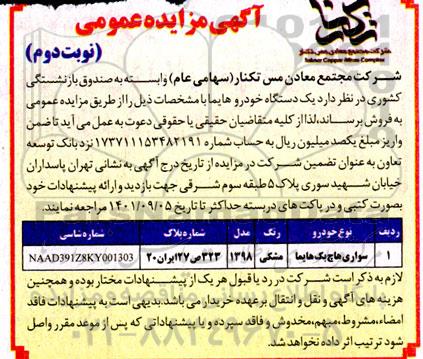 آگهی مزایده عمومی
(نوبت دوم)
تکنار
شرکت مجتمع معادن مس تکنار
Taknar Copper Mines Complex
شرکت مجتمع معادن مس تکنار (سهامی عام) وابسته به صندوق بازنشستگی
کشوری در نظر دارد یک دستگاه خودرو هایما با مشخصات ذیل را از طریق مزایده عمومی
به فروش برساند، لذا از کلیه متقاضیان حقیقی یا حقوقی دعوت به عمل می آید تا ضمن
واریز مبلغ یکصد میلیون ریال به حساب شماره ۱۷۳۷۱۱۱۵۳۴۸۲۱۹۱ نزد بانک توسعه
تعاون به عنوان تضمین شرکت در مزایده از تاریخ درج آگهی به نشانی تهران پاسداران
خیابان شهید سوری پلاک ۵ طبقه سوم شرقی جهت بازدید و ارائه پیشنهادات خود
بصورت کتبی و در پاکت های دربسته حداکثر تا تاریخ ۱۴۰۱/۰۹/۰۵ مراجعه نمایند.
ردیف نوع خودرو رنگ مدل شماره پلاک شماره شاسی
۱ سواری هاچ بک هایما مشکی ۱۳۹۸ ۳۲۳ص۲۷ ایران ۲۰ NAAD391Z8KY001303
لازم به ذکر است شرکت در رد یا قبول هر یک از پیشنهادات مختار بوده و همچنین
هزینه های آگهی و نقل و انتقال بر عهده خریدار می باشد. بدیهی است به پیشنهادات فاقد
امضاء، مشروط، مبهم، مخدوش و فاقد سپرده و یا پیشنهاداتی که پس از موعد مقرر واصل
شود ترتیب اثر داده نخواهد شد.